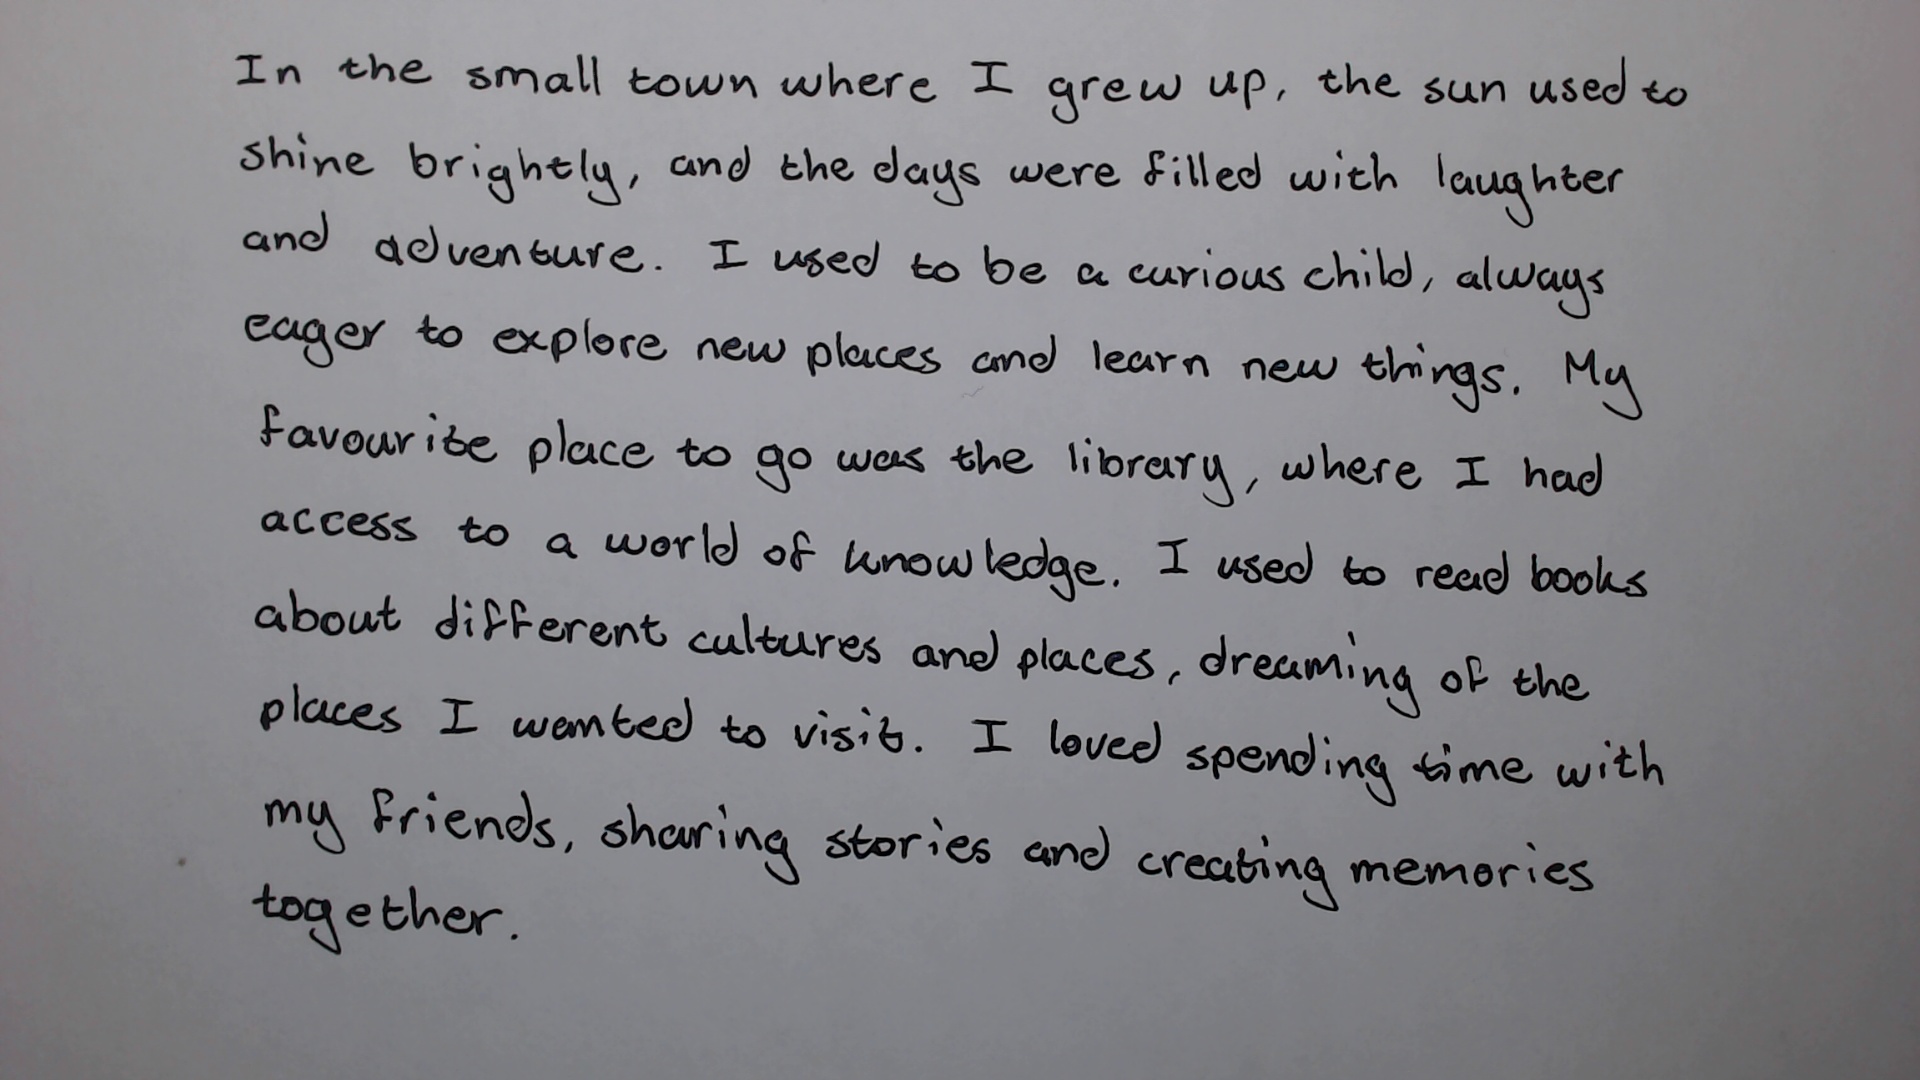 In the small town where I grew up, the sun used to
shine brightly, and the days were filled with laughter
and adventure. I used to be a curious child, always
eager to explore new places and learn new things. My
favourite place to go was the library, where I had
access to a world of knowledge. I used to read books
about different cultures and places, dreaming of the
places I wanted to visit. I loved spending time with
my friends, sharing stories and creating memories
together.